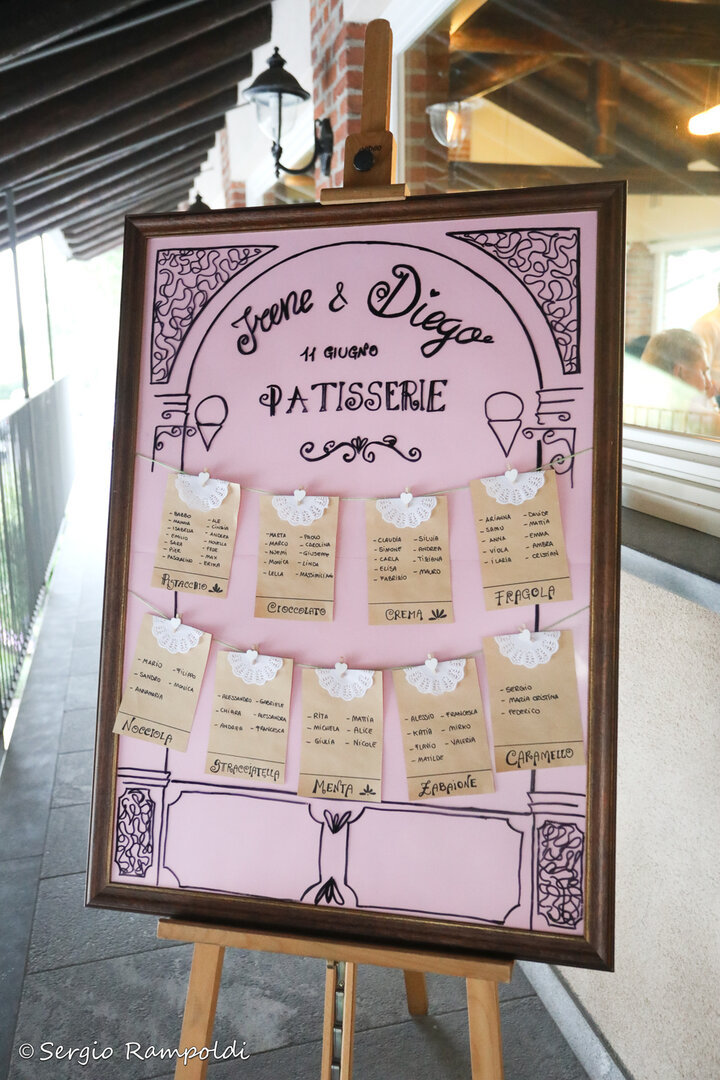 Irene & Diego
11 GIUGNO
PATISSERIE
- BARBO - ALE
- MAMMA - CINZIA
- ISABELLA - ANDREA
- EMILIO - NOVELLA
- SARA - FEDE
- PIER - MAX
- PASQUALINO - ERIKA
PISTACCHIO
- MARTA - PAOLO
- MARCO - CAROLINA
- NOEMI - GIUSEPPE
- MONICA - LINDA
- LELLA - MASSIMILIANO
CIOCCOLATO
- CLAUDIA - SILVIA
- SIMONE - ANDREA
- CARLA - TIZIANA
- ELISA - MAURO
- FABRIZIO
CREMA
- ARIANNA - DAVIDE
- SAMU - MATTIA
- ANNA - EMMA
- VIOLA - AMBRA
- ILARIA - CRISTIAN
FRAGOLA
- MARIO - FILIPPO
- SANDRO - MONICA
- ANNAMARIA
NOCCIOLA
- ALESSANDRO - GABRIELE
- CHIARA - ALESSANDRA
- ANDREA - FRANCESCA
STRACCIATELLA
- RITA - MATTIA
- MICHELA - ALICE
- GIULIA - NICOLE
MENTA
- ALESSIO - FRANCESCA
- KATIA - MIRKO
- FLAVIO - VALERIA
- MATILDE
ZABAIONE
- SERGIO
- MARIA CRISTINA
- FEDERICO
CARAMELLO
© Sergio Rampoldi